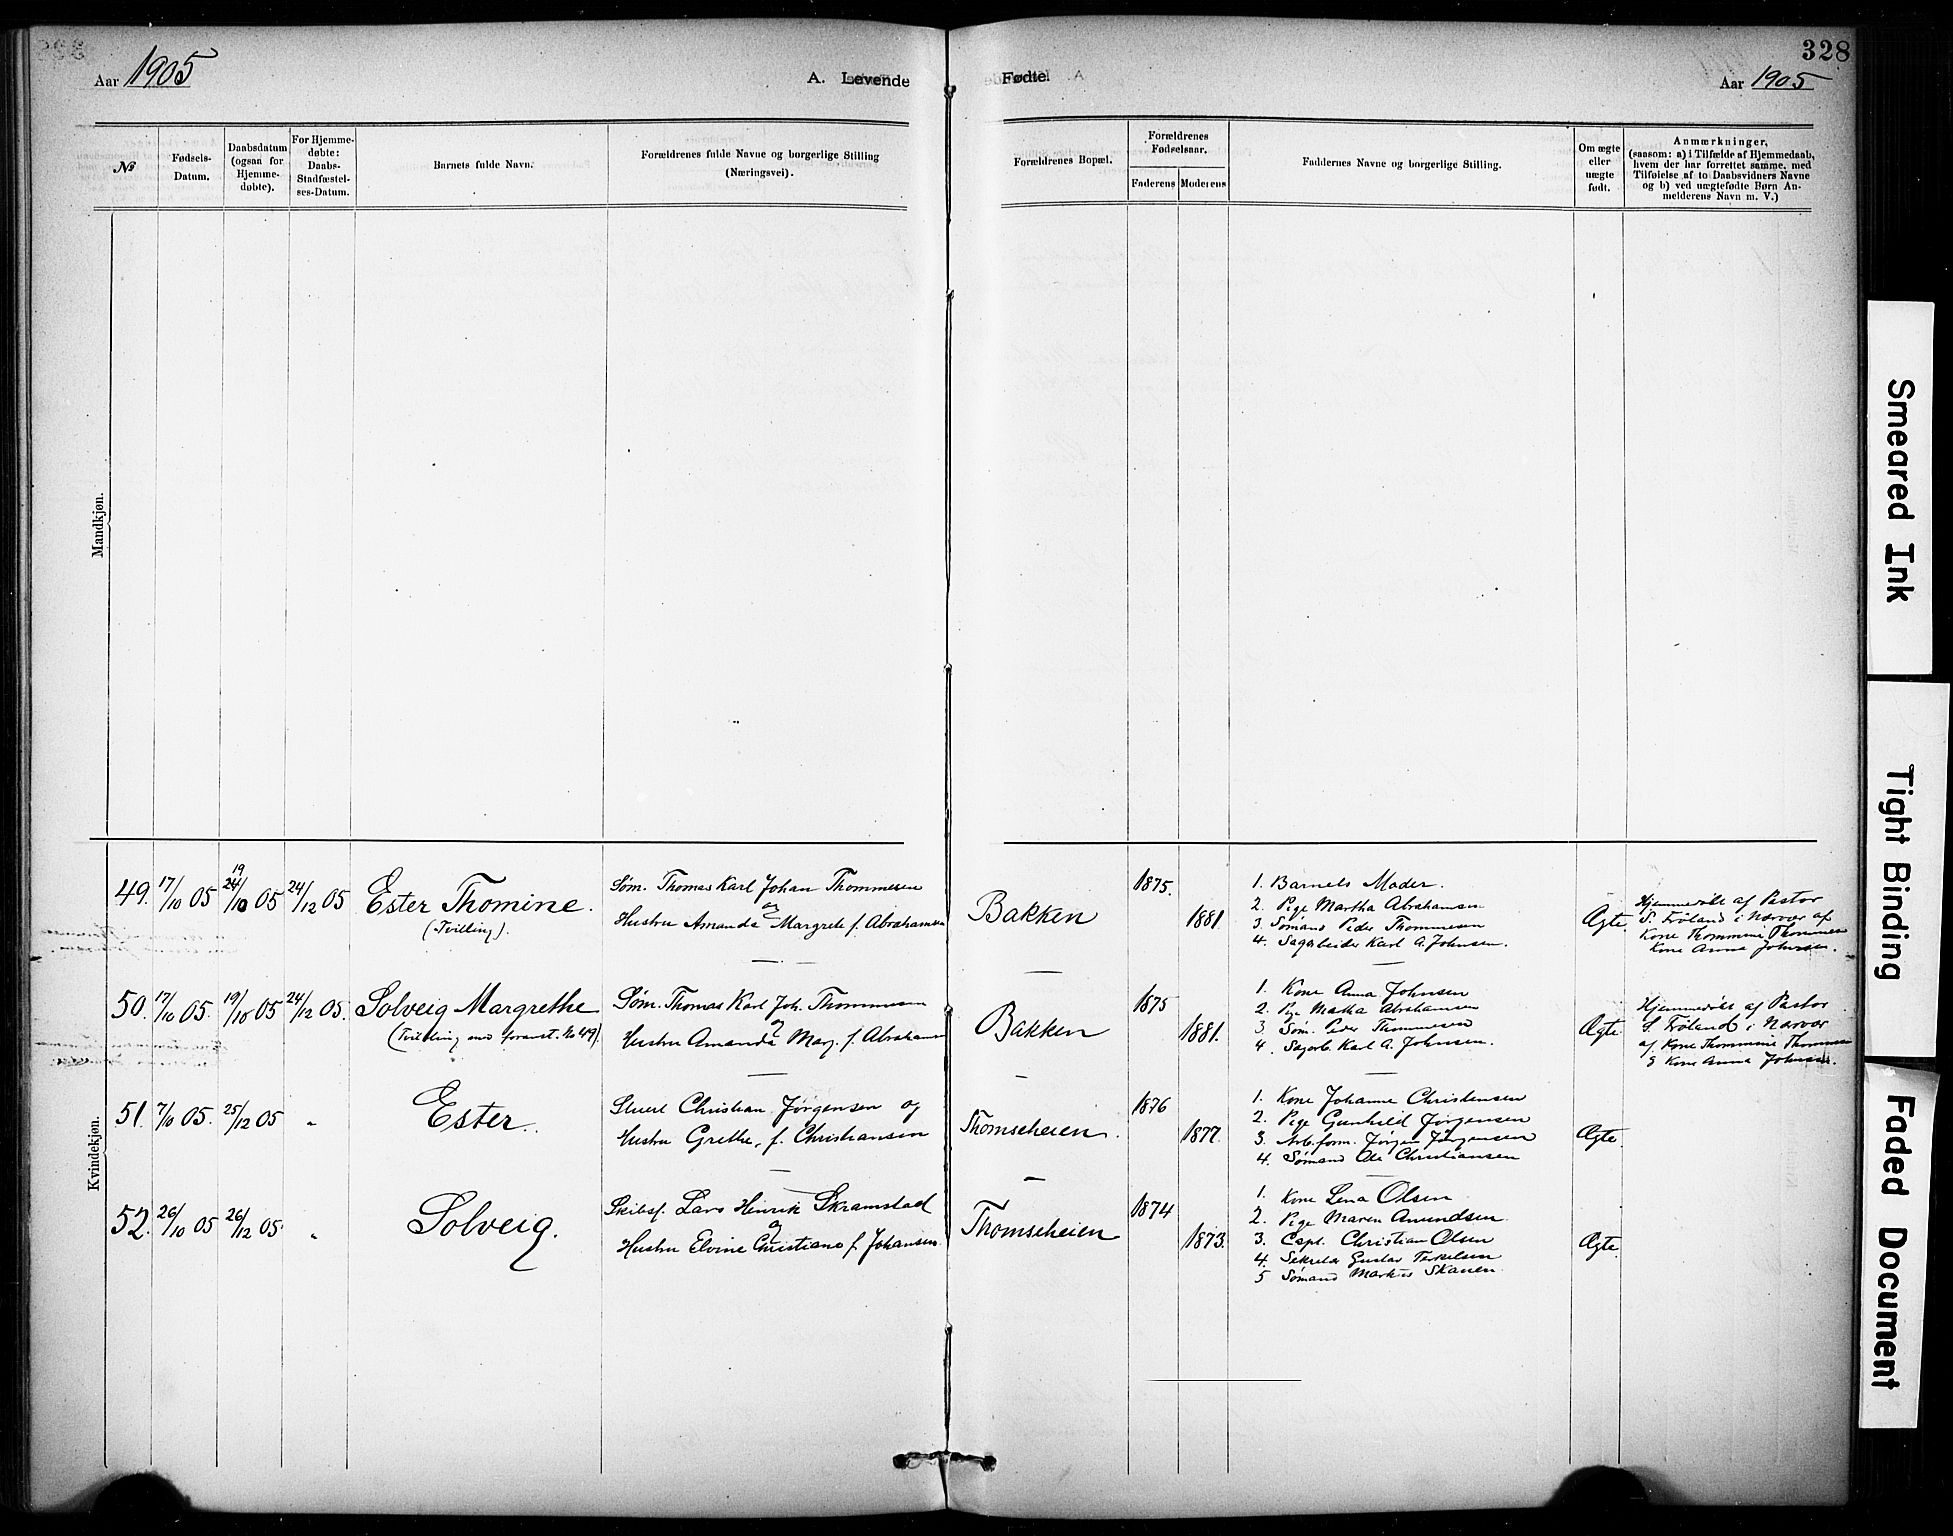 Aar 1905
A. Levende
Fødte.
328
Aar 1905
№
Fødsels-
Datum.
Daabsdatum
(ogsaa for
Hjemme-
døbte).
For Hjemme-
døbte:
Daabs-
Stadfæstel-
ses-Datum.
Barnets fulde Navn.
Forældrenes fulde Navne og borgerlige Stilling
(Næringsvei).
Forældrenes Bopæl.
Forældrenes
Fødselsaar.
Faderens
Moderens
Faddernes Navne og borgerlige Stilling.
Om ægte
eller
uægte
født.
Anmærkninger,
(saasom: a) i Tilfælde af Hjemmedaab,
hvem der har forrettet samme, med
Tilføielse af to Daabsvidners Navne
og b) ved uægtefødte Børn An-
melderens Navn m. V.)
Mandkjøn.
Kvindekjøn.
49. 17/10 05 19 24/10 05 24/12 05 Ester Thomine.
(Tvilling).
Søm. Thomas Karl Johan Thommesen
og
Hustru Amanda Margrete f. Abrahamsen
Bakken
1875.
1881.
1. Barnets Moder.
2. Pige Martha Abrahamsen
3. Sømand Peder Thommesen
4. Sagarbeider Karl A. Johnsen.
Ægte
Hjemmedøbt af Pastor
S. Frøland i Nærvær af
Kone Thommine Thommesen
Kone Anna Johnsen.
50. 17/10 05. 19/10 05 24/12 05. Solveig Margrethe
(Tvilling med foranst. No 49).
Søm. Thomas Karl Joh. Thommesen
og
Hustru Amanda Marg. f. Abrahamsen
Bakken
1875
1881.
1. Kone Anna Johnsen
2. Pige Martha Abrahamsen
3. Søm. Peder Thommesen
4. Sagarb. Karl A. Johnsen.
Ægte.
Hjemmedøbt af Pastor
S. Frøland i Nærvær
af Kone Thommine Thommesen
& Kone Anna Johnsen.
51. 7/10 05. 25/12 05 " Ester.
Stuert Christian Jørgensen og
Hustru Grethe, f. Christiansen
Thomseheien.
1876
1877.
1. Kone Johanne Christensen
2. Pige Gunhild Jørgensen
3. Arb.form. Jørgen Jørgensen
4. Sømand Ole Christiansen
Ægte.
52. 26/10 05 26/12 05. " Solveig.
Skibsf. Lars Henrik Skramstad
og
Hustru Elvine Christiane f. Johansen.
Thomseheien
1874
1873.
1. Kone Lena Olsen
2. Pige Maren Amundsen.
3. Capt. Christian Olsen
4. Sekretær Gustav Terkelsen
5 Sømand Markus Skauen.
Ægte.
Smeared Ink
Tight Binding
Faded Document